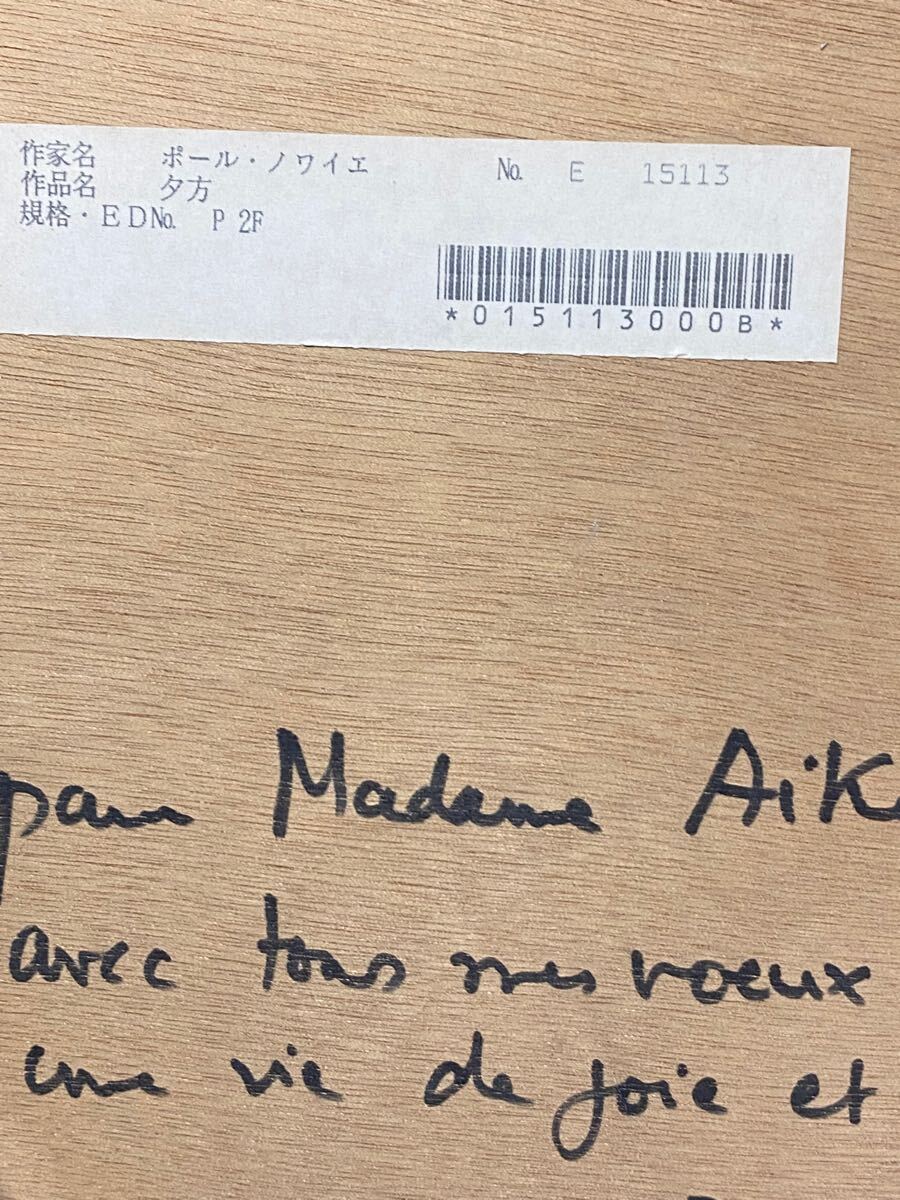 作家名 ポール・ノワイエ No. E 15113
作品名 夕方
規格・EDNo. P 2F
*015113000B*
pour Madame Aik
avec tous mes voeux
une vie de joie et